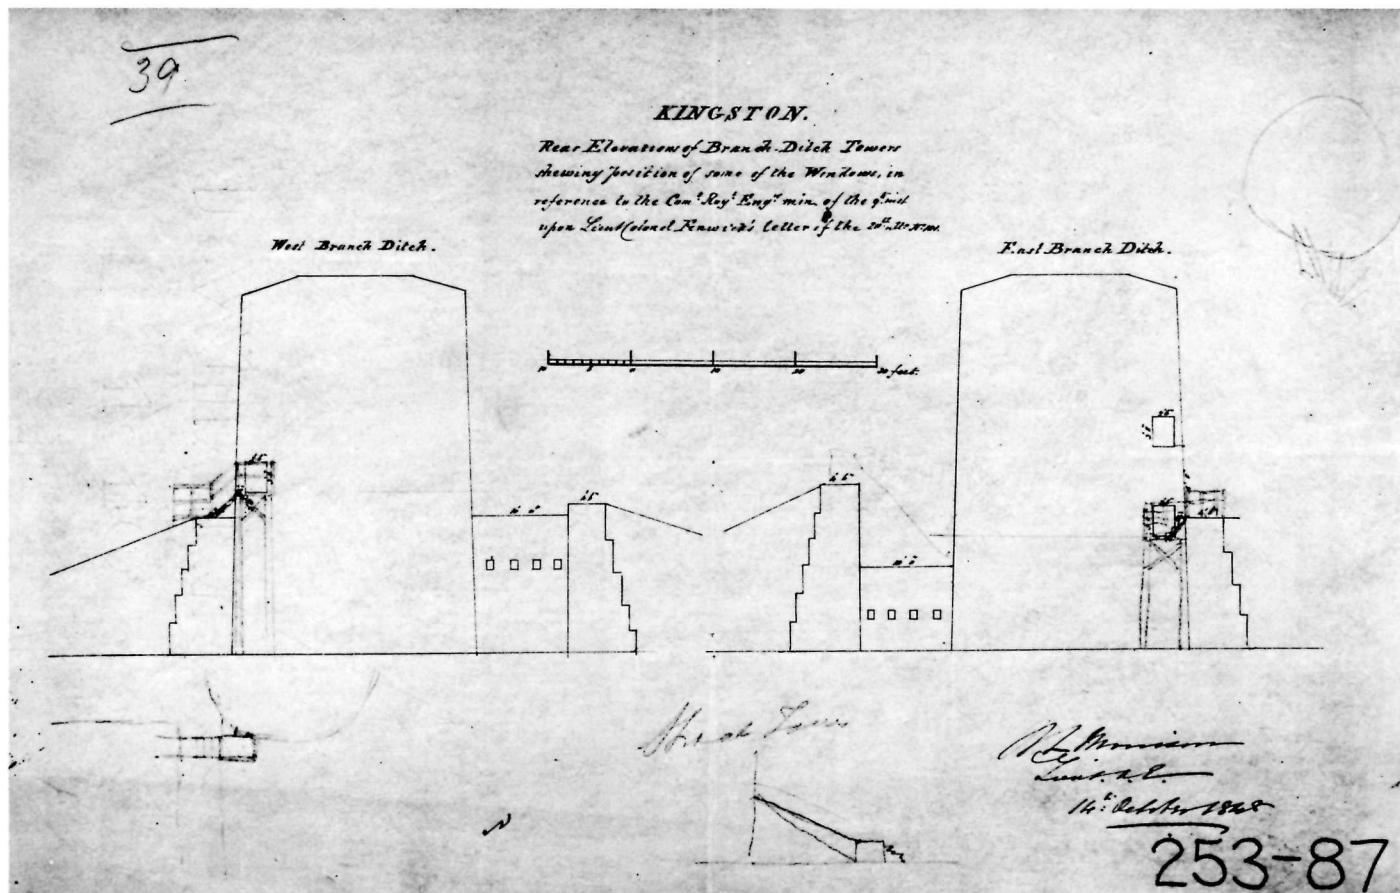 39
KINGSTON.
Rear Elevations of Branch Ditch Towers
shewing position of some of the Windows, in
reference to the Comg Royl Engr min. of the 9th inst
upon Lieut Colonel Fenwick's letter of the 20th
West Branch Ditch.
East Branch Ditch.
10 5 0 10 20 30 feet.
Morrison
Lieut. R.E.
14th October 1848
253-87